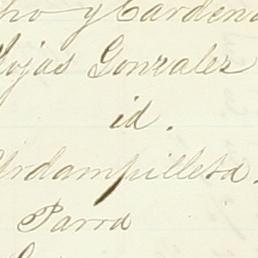 y Cardena
Rojas Gonzalez
id.
Urdampilleta.
Parra